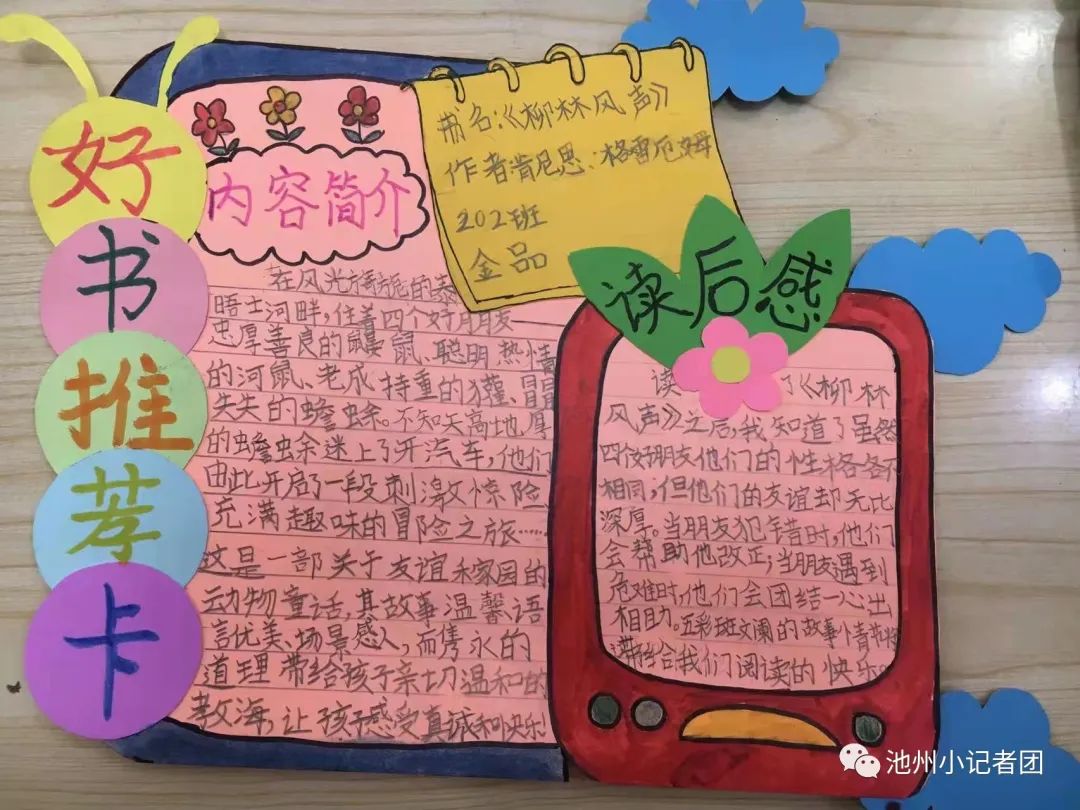 好
书
推
荐
卡
内容简介
在风光旖旎的泰
晤士河畔,住着四个好朋友——
忠厚善良的鼹鼠、聪明热情
的河鼠、老成持重的獾、冒冒
失失的蟾蜍。不知天高地厚
的蟾蜍迷上了开汽车,他们
由此开启了一段刺激惊险
充满趣味的冒险之旅……
这是一部关于友谊和家园的
动物童话,其故事温馨语
言优美、场景感人,而隽永的
道理带给孩子亲切温和的
教海,让孩子感受真诚和快乐!
书名:《柳林风声》
作者肯尼思:格雷厄姆
202班
金品
读后感
读了《柳林
风声》之后,我知道了虽然
四位好朋友他们的性格各不
相同,但他们的友谊却无比
深厚。当朋友犯错时,他们
会帮助他改正;当朋友遇到
危难时,他们会团结一心出
相助。五彩斑斓的故事情节
带给我们阅读的快乐。
池州小记者团